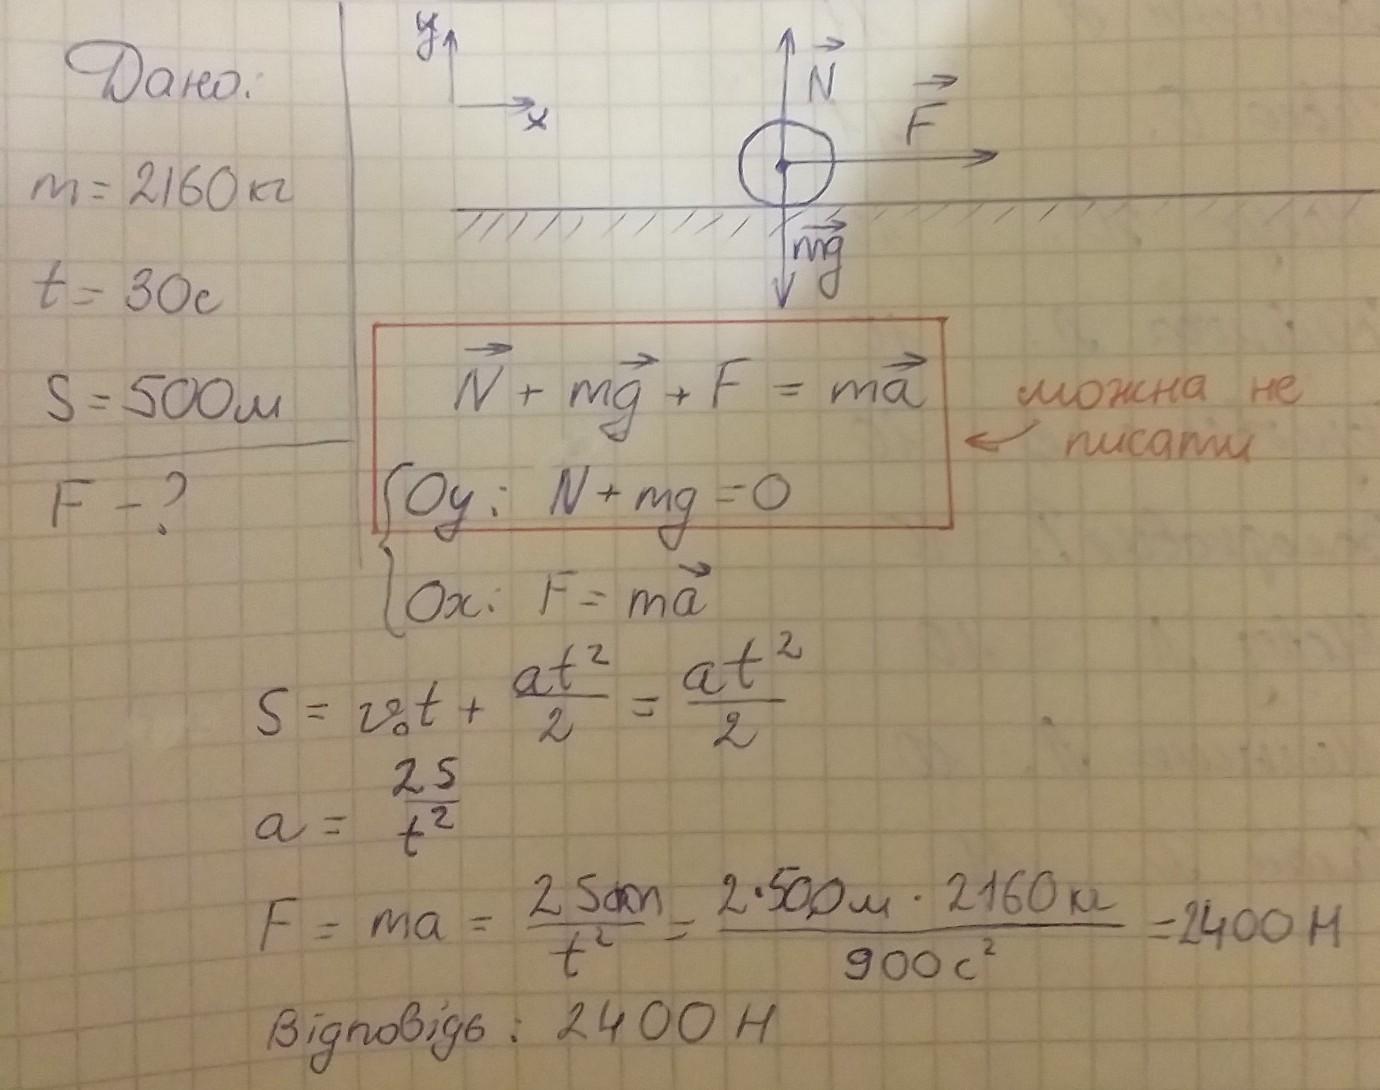 Дано:
m = 2160кг
t = 30с
S = 500м
F - ?
y
x
N
F
mg
N + mg + F = ma
можна не
писати
Oy: N + mg = 0
Ox: F = ma
S = v₀t + at²/2 = at²/2
a = 2S/t²
F = ma = 2Sm/t² = 2·500м · 2160кг/900с² = 2400 Н
Відповідь: 2400 Н